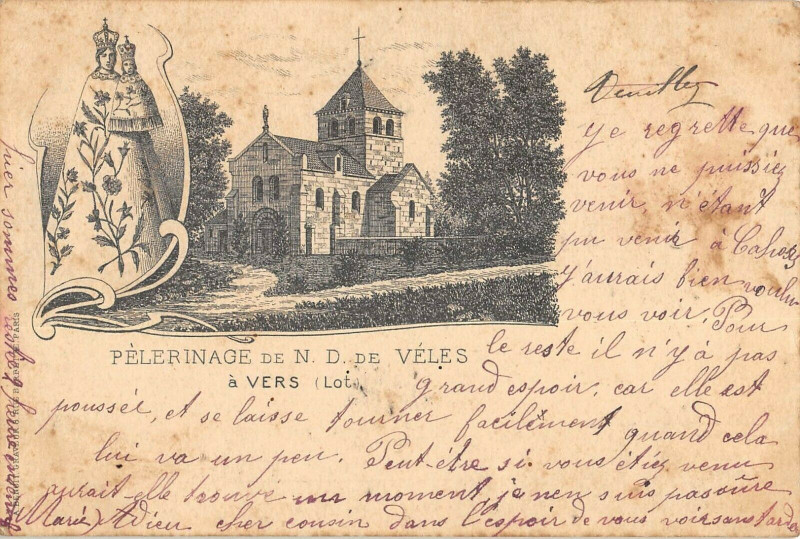 PÈLERINAGE DE N. D. DE VÉLES
à VERS (Lot)
je regrette que
vous ne puissiez
venir n'étant
pu venir à Cahors
j'aurais bien voulu
vous voir. Pour
le reste il n'y à pas
grand espoir, car elle est
poussée, et se laisse tourner facilement quand cela
lui va un peu. Peut-être si vous étiez venu
aurait elle trouvé un moment, je n'en suis pas sûre
(Marie) Adieu cher cousin dans l'espoir de vous voir sans tarder
hier sommes
PARIS